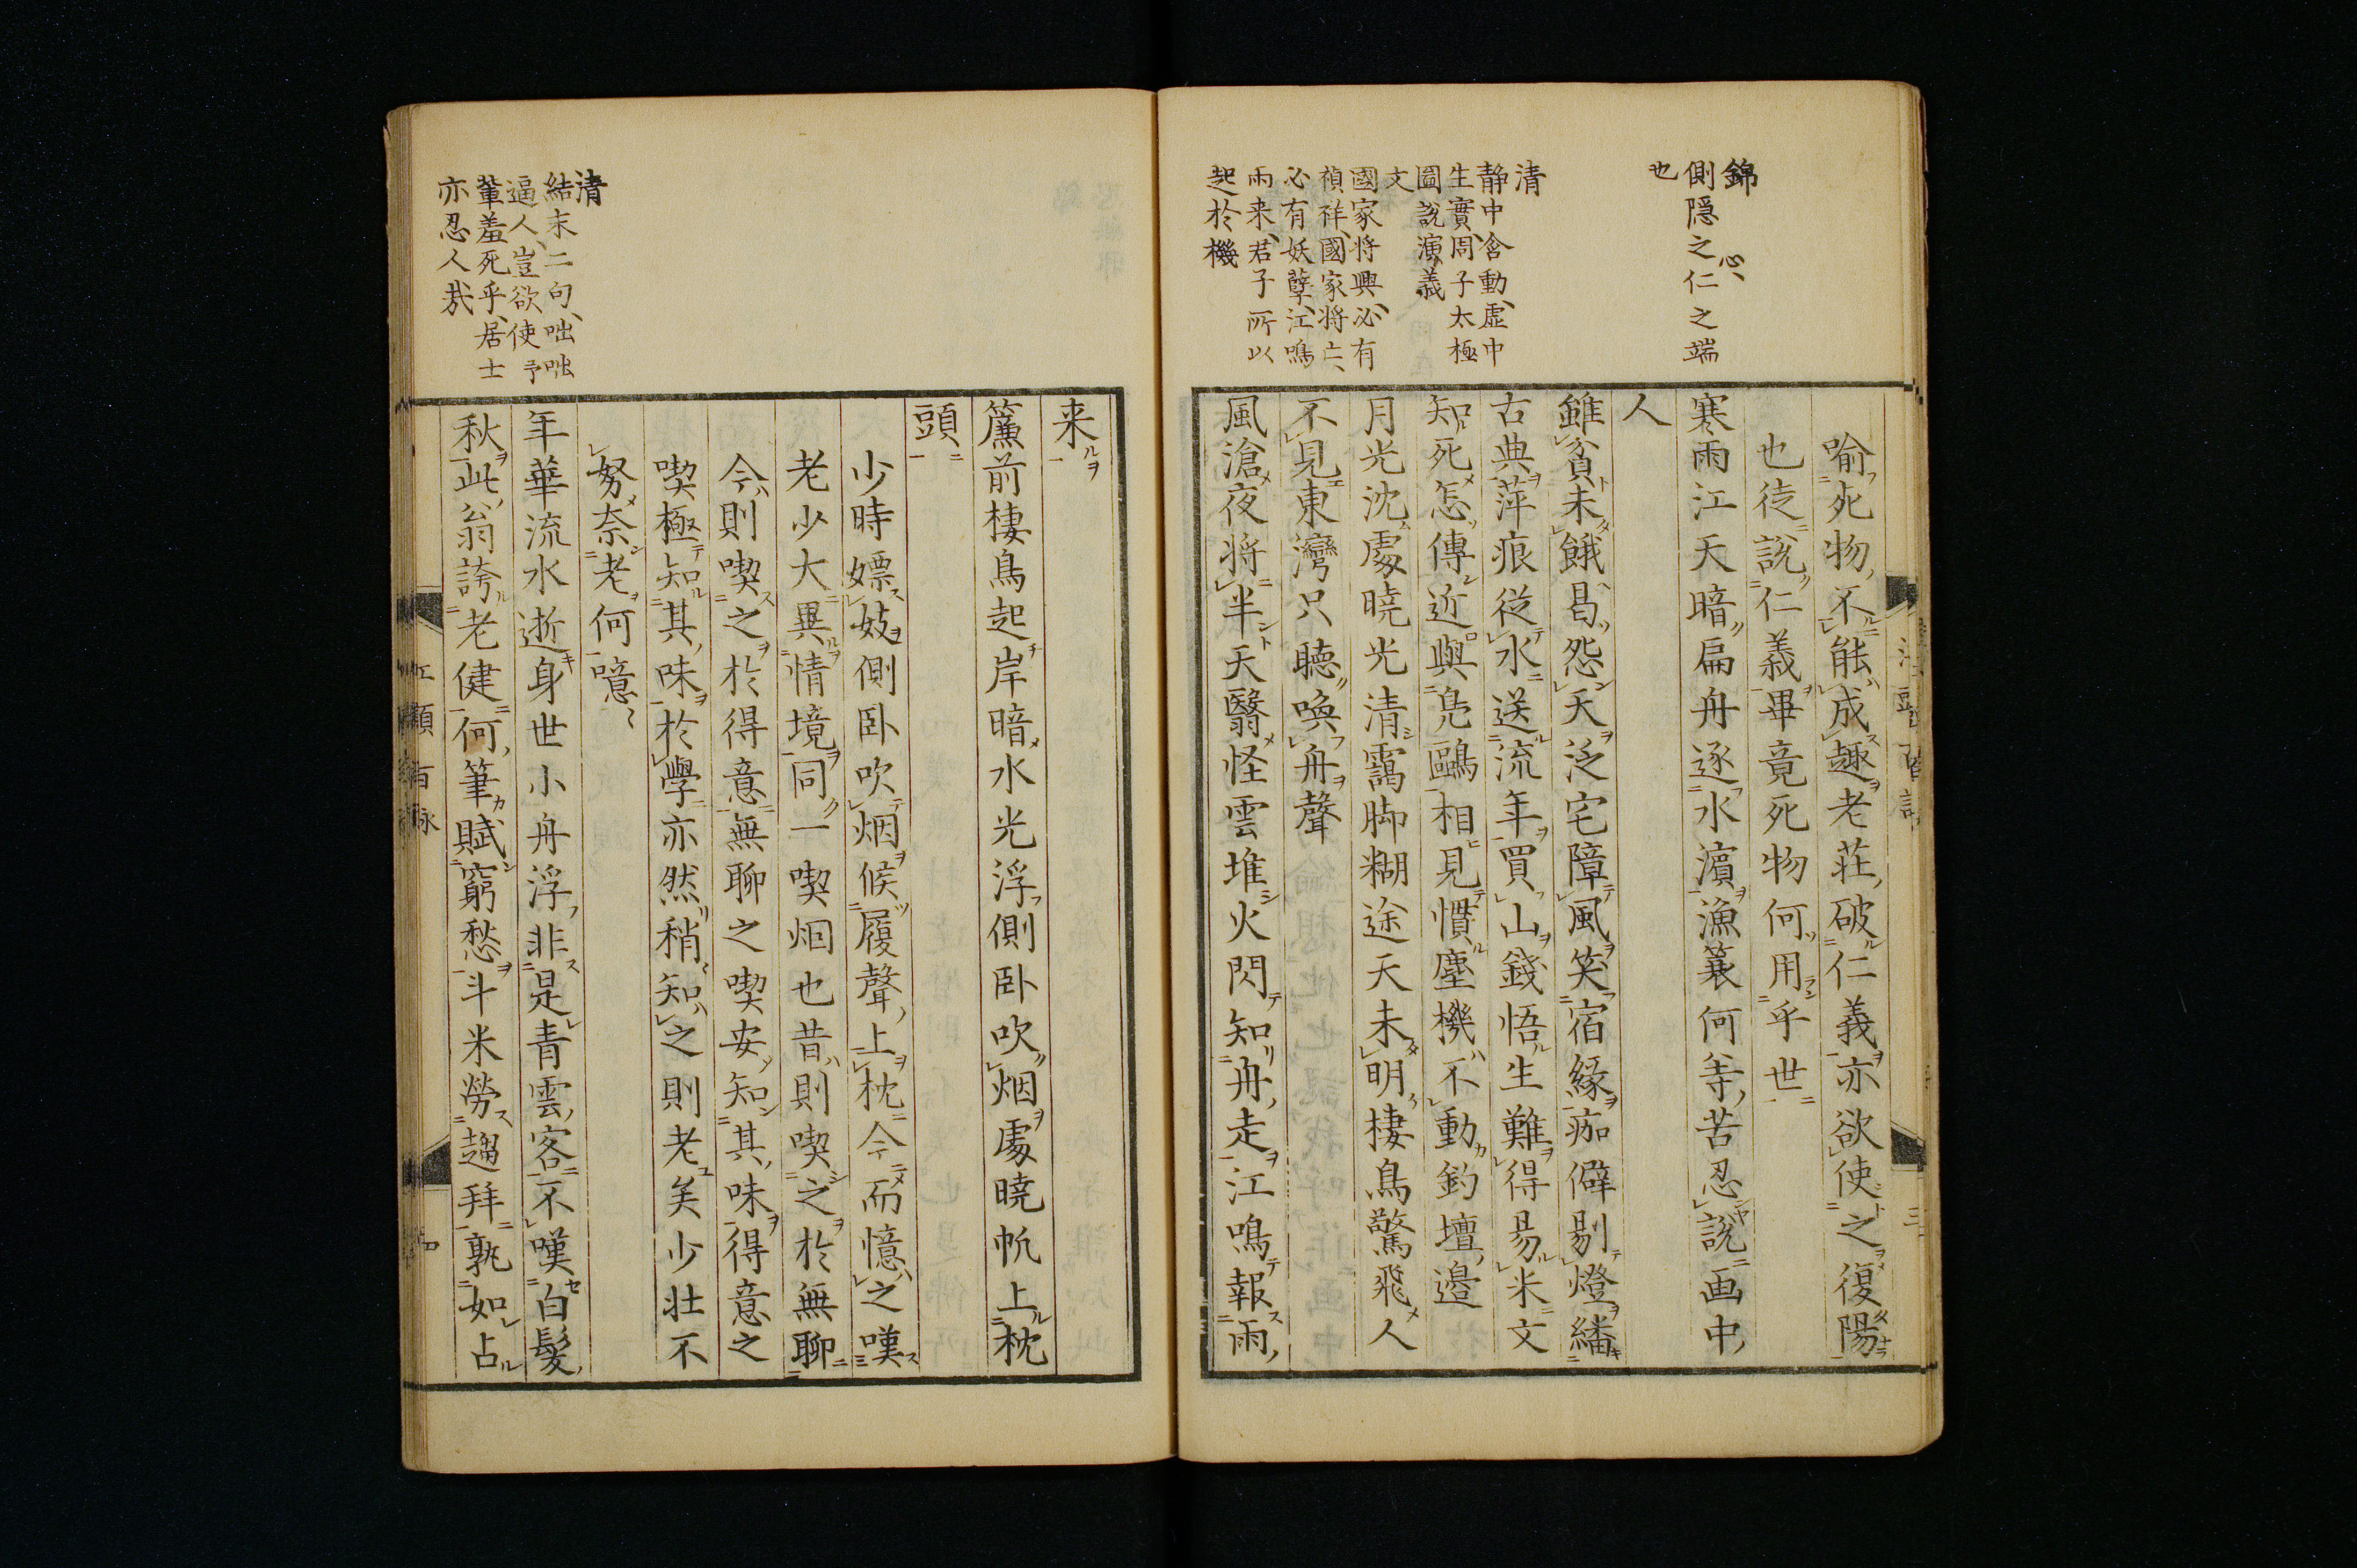 錦
心、
側隠之仁之端
也
清
静中含動、虚中
生實、周子太極
圖說演義
文
國家将興、必有
禎祥、國家将亡、
必有妖孽、江鳴
雨来、君子所以
起於機
喻死物不能成趣老荘破仁義亦欲使之復陽
也徒說仁義畢竟死物何用乎世
寒雨江天暗扁舟逐水濵漁簑何等苦忍說画中
人
雖貧未餓曷怨天泛宅障風笑宿緣痂僻剔燈繙
古典萍痕從水送流年買山錢悟生難得易米文
知死怎傳近與鳧鷗相見慣塵機不動釣壇邉
月光沈處曉光清靄脚糊途天未明棲鳥驚飛人
不見東灣只聴喚舟聲
風滄夜将半天翳怪雲堆火閃知舟走江鳴報雨
来
簾前棲鳥起岸暗水光浮側卧吹烟處曉帆上枕
頭
少時嫖妓側卧吹烟候履聲上枕今而憶之嘆
老少大異情境同一喫烟也昔則喫之於無聊
今則喫之於得意無聊之喫安知其味得意之
喫極知其味於學亦然稍知之則老矣少壮不
努奈老何噫〻
年華流水逝身世小舟浮非是青雲客不嘆白髪
秋此翁誇老健何筆賦窮愁斗米勞趨拜孰如占
清
結末二句、咄咄
逼人、豈欲使予
輩羞死乎、居士
亦忍人哉
江頭百詠
四
三